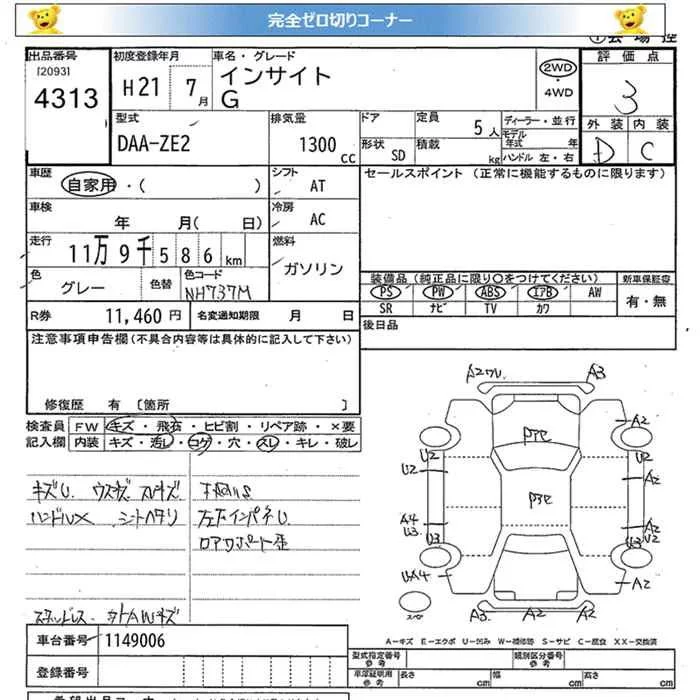 完全ゼロ切りコーナー
出品番号 初度登録年月 車名・グレード 評価点
[2093] H21 7月 インサイト 2WD
4313 G ・4WD 3
型式 排気量 ドア 定員 5人 ディーラー・並行 外装 内装
DAA-ZE2 1300cc 形状 SD 積載 kg モデル年式 年 D C
ハンドル 左・右
車歴 シフト セールスポイント (正常に機能するものに限ります)
自家用・( ) AT
車検 冷房
年 月( 日) AC
走行 燃料
11万9千586km ガソリン
色 色替 色コード 装備品 (純正品に限り○をつけてください) 新車保証書
グレー NH737M PS PW ABS エアB AW 有・無
SR ナビ TV カワ
R券 11,460円 名変通知期限 月 日 後日品
注意事項申告欄 (不具合内容等は具体的に記入して下さい)
修復歴 有 [箇所 ]
検査員 FW キズ・飛石・ヒビ割・リペア跡・×要
記入欄 内装 キズ・汚レ・コゲ・穴・スレ・キレ・破レ
キズU ウスキズ スレキズ 下廻りS
ハンドルX シートヘタリ 左右インパネU
ロアサポート歪
A3
A2
U2 U2
U2 A2
A4 A2
U3 U2
U3 U3
A2
A3 A2 A2
スペア
A-キズ E-エクボ U-凹み W-補修跡 S-サビ C-腐食 XX-交換済
車台番号 1149006 型式指定番号 参考 類別区分番号 参考
登録番号 車庫証明用 参考 長さ cm 幅 cm 高さ cm